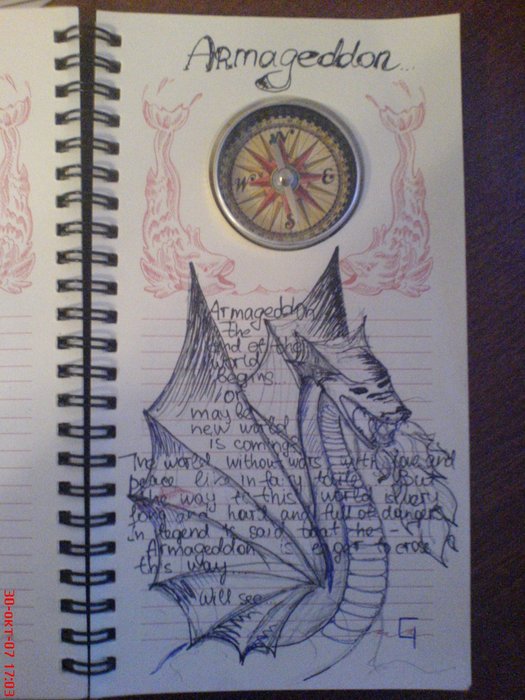 Armageddon...
N
W
E
S
Armageddon
the
end of the
world
begins...
or
maybe
new world
is coming
The world without wars, with love and
peace like in fairy tale. But
the way to this world is very
long and hard and full of dangers
in legend is said that he -
Armageddon is eager to cross
this way...
Will see...
G
30-OKT-07 17:03